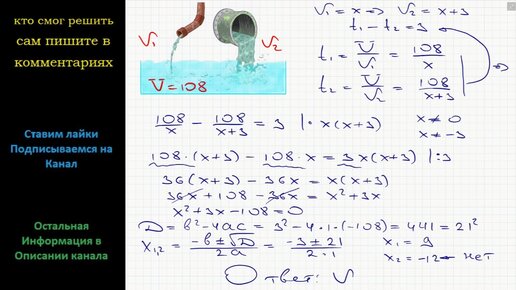 кто смог решить
сам пишите в
комментариях
Ставим лайки
Подписываемся на
Канал
Остальная
Информация в
Описании канала
V₁
V₂
V=108
V₁ = x ⇒ V₂ = x+3
t₁ - t₂ = 3
t₁ = V/V₁ = 108/x
t₂ = V/V₂ = 108/(x+3)
108/x - 108/(x+3) = 3 |· x(x+3)
x ≠ 0
x ≠ -3
108·(x+3) - 108·x = 3x(x+3) |:3
36(x+3) - 36x = x(x+3)
36x + 108 - 36x = x² + 3x
x² + 3x - 108 = 0
D = b² - 4ac = 3² - 4·1·(-108) = 441 = 21²
x₁,₂ = (-b ± √D)/2a = (-3 ± 21)/(2·1)
x₁ = 9
x₂ = -12 - нет
Ответ: V